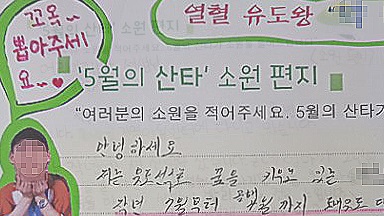 꼬옥
뽑아주세
요~♥
열혈 유도왕 "
'5월의 산타' 소원 편지
"여러분의 소원을 적어주세요. 5월의 산타가
안녕하세요
저는 유도선수로 꿈을 키우고 있는
작년 7월부터 9월까지